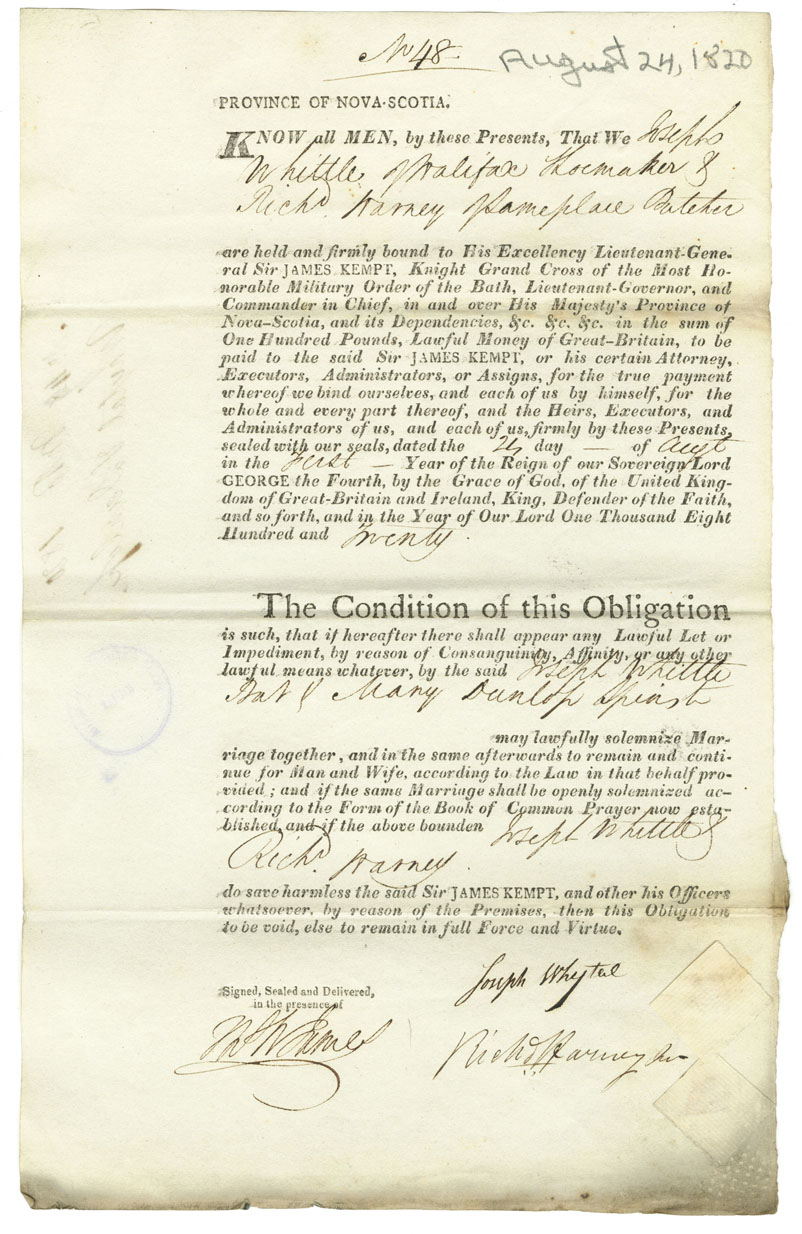 No 48
August 24, 1820
PROVINCE OF NOVA-SCOTIA.
KNOW all MEN, by these Presents, That We Joseph
Whittle of Halifax Shoemaker &
Richd. Harney of Sameplace Butcher
are held and firmly bound to His Excellency Lieutenant-Gene-
ral Sir JAMES KEMPT, Knight Grand Cross of the Most Ho-
norable Military Order of the Bath, Lieutenant-Governor, and
Commander in Chief, in and over His Majesty's Province of
Nova-Scotia, and its Dependencies, &c. &c. &c. in the sum of
One Hundred Pounds, Lawful Money of Great-Britain, to be
paid to the said Sir JAMES KEMPT, or his certain Attorney,
Executors, Administrators, or Assigns, for the true payment
whereof we bind ourselves, and each of us by himself, for the
whole and every part thereof, and the Heirs, Executors, and
Administrators of us, and each of us, firmly by these Presents,
sealed with our seals, dated the 24 day — of Augt
in the First — Year of the Reign of our Sovereign Lord
GEORGE the Fourth, by the Grace of God, of the United King-
dom of Great-Britain and Ireland, King, Defender of the Faith,
and so forth, and in the Year of Our Lord One Thousand Eight
Hundred and Twenty.
The Condition of this Obligation
is such, that if hereafter there shall appear any Lawful Let or
Impediment, by reason of Consanguinity, Affinity, or any other
lawful means whatever, by the said Joseph Whittle
Bat & Mary Dunlop Spinst
may lawfully solemnize Mar-
riage together, and in the same afterwards to remain and conti-
nue for Man and Wife, according to the Law in that behalf pro-
vided; and if the same Marriage shall be openly solemnized ac-
cording to the Form of the Book of Common Prayer now esta-
blished, and if the above bounden Joseph Whittle &
Richd. Harney.
do save harmless the said Sir JAMES KEMPT, and other his Officers
whatsoever, by reason of the Premises, then this Obligation
to be void, else to remain in full Force and Virtue.
Signed, Sealed and Delivered,
in the presence of
Joseph Whytal
James
Richd Harney